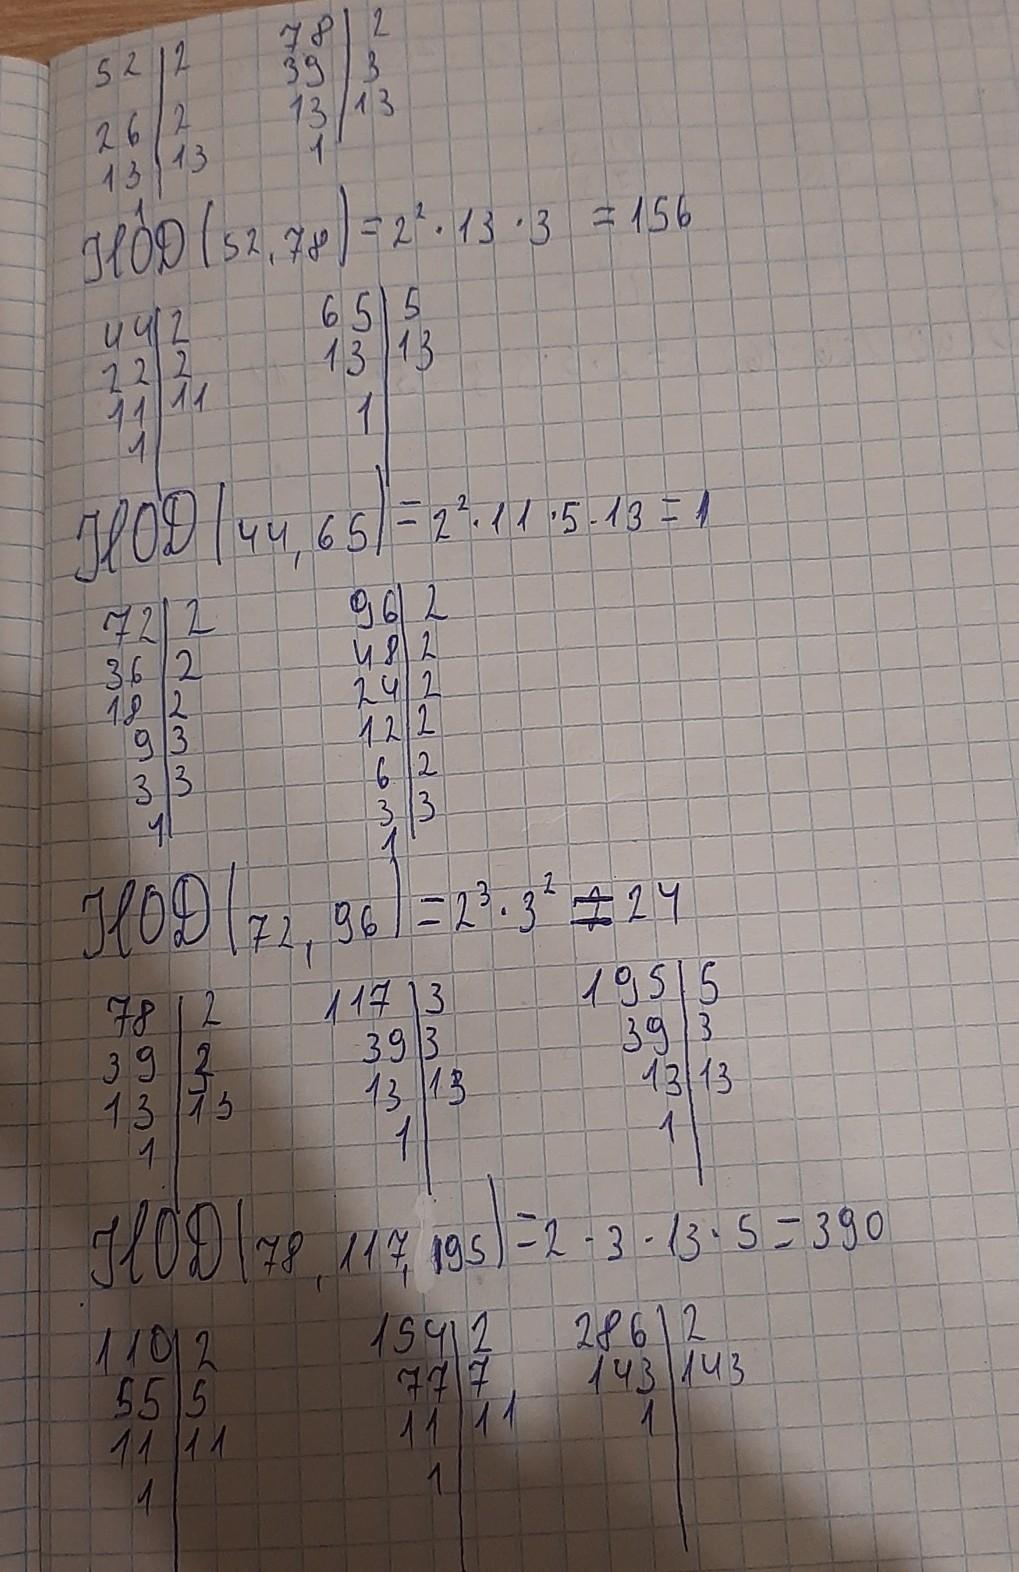 52 | 2    78 | 2
26 | 2    39 | 3
13 | 13    13 | 13
1    1
НОД (52, 78) = 2² · 13 · 3 = 156
44 | 2    65 | 5
22 | 2    13 | 13
11 | 11    1
1
НОД (44, 65) = 2² · 11 · 5 · 13 = 1
72 | 2    96 | 2
36 | 2    48 | 2
18 | 2    24 | 2
9 | 3    12 | 2
3 | 3    6 | 2
1    3 | 3
1
НОД (72, 96) = 2³ · 3² = 24
78 | 2    117 | 3    195 | 5
39 | 3    39 | 3    39 | 3
13 | 13    13 | 13    13 | 13
1    1    1
НОД (78, 117, 195) = 2 · 3 · 13 · 5 = 390
110 | 2    154 | 2    286 | 2
55 | 5    77 | 7    143 | 143
11 | 11    11 | 11    1
1    1